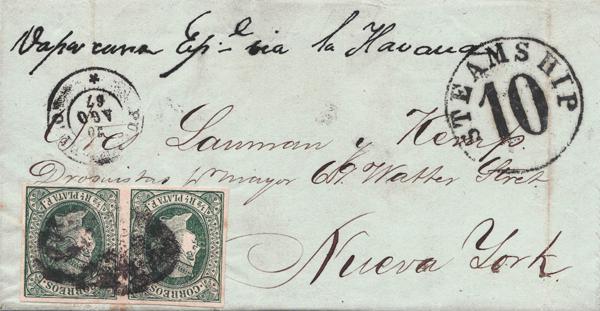 Vapor correo Esp.l via la Havana
STEAMSHIP
10
PUE
20
AGO
67
Sres Lanman y Kemp.
Droguistas pr mayor 69. Watter Stret
Nueva York.
½ RL PLATA F.
CORREOS
½ RL PLATA F.
CORREOS